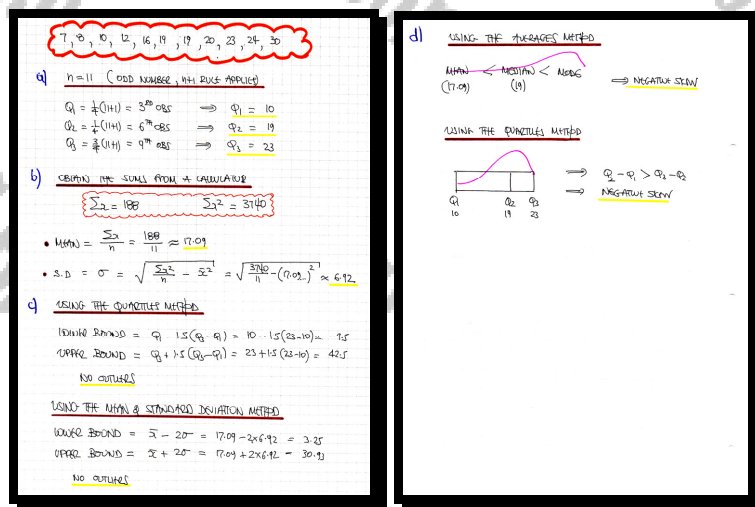 7, 8, 10, 12, 16, 19, 19, 20, 23, 24, 30
a) n=11 (ODD NUMBER, n+1 RULE APPLIES)
Q₁ = ¼(11+1) = 3RD OBS ⇒ Q₁ = 10
Q₂ = ½(11+1) = 6TH OBS ⇒ Q₂ = 19
Q₃ = ¾(11+1) = 9TH OBS ⇒ Q₃ = 23
b) OBTAIN THE SUMS FROM A CALCULATOR
Σx = 188 Σx² = 3740
• MEAN = Σx/n = 188/11 ≈ 17.09
• S.D = σ = √(Σx²/n - x̄²) = √(3740/11 - (17.09...)²) ≈ 6.92
c) USING THE QUARTILES METHOD
LOWER BOUND = Q₁ - 1.5(Q₃-Q₁) = 10 - 1.5(23-10) = -9.5
UPPER BOUND = Q₃ + 1.5(Q₃-Q₁) = 23 + 1.5(23-10) = 42.5
NO OUTLIERS
USING THE MEAN & STANDARD DEVIATION METHOD
LOWER BOUND = x̄ - 2σ = 17.09 - 2×6.92 = 3.25
UPPER BOUND = x̄ + 2σ = 17.09 + 2×6.92 = 30.93
NO OUTLIERS
d) USING THE AVERAGES METHOD
MEAN < MEDIAN < MODE ⇒ NEGATIVE SKEW
(17.09) (19)
USING THE QUARTILES METHOD
⇒ Q₂ - Q₁ > Q₃ - Q₂
⇒ NEGATIVE SKEW
Q₁ Q₂ Q₃
10 19 23